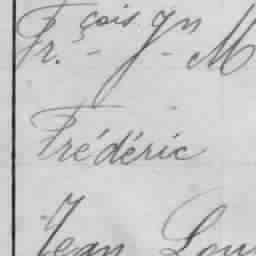 Fr.çois - Jn - M
Frédéric
Jean Lou